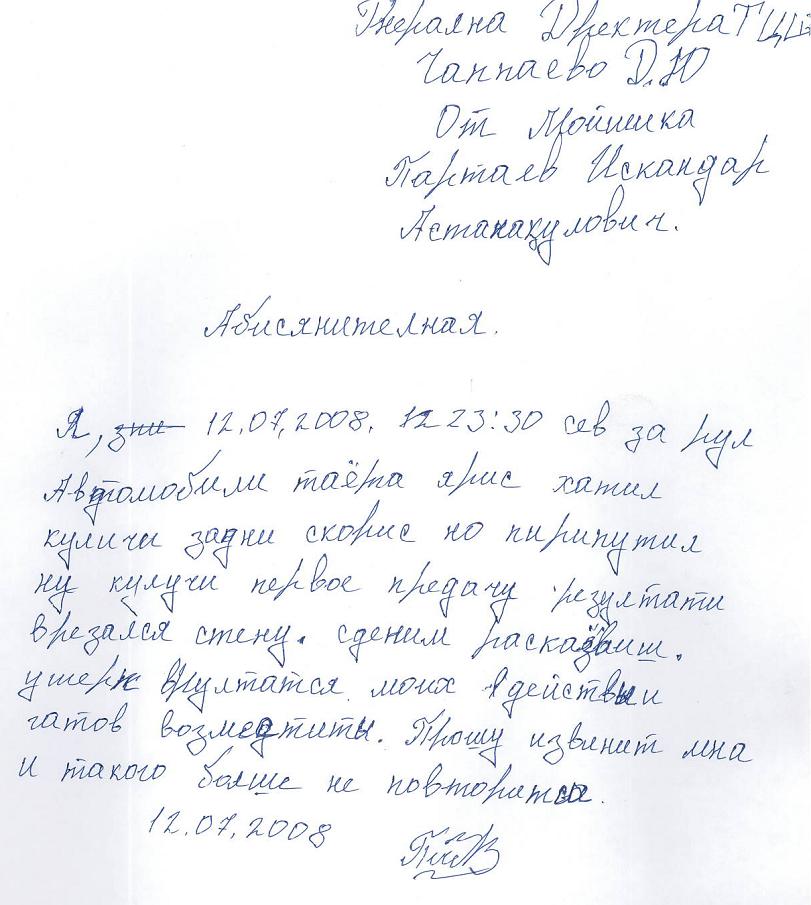 Гнерална Дректера ТЦ
Чаппаево Д.Ю
От Мойшика
Партаев Искандар
Астанакулович.
Абисянителная.
Я, зни 12.07.2008. 12 23:30 сев за рул
Автомобили таёта ярис хатил
куличи задни скорис но пирипутил
ну кулучи первое предачу резултати
врезался стену. сденим расказваиш.
ушерк вруултатся моих вдействыи
гатов возмедтиты. Прошу извинит мна
и такого болше не повторится.
12.07.2008